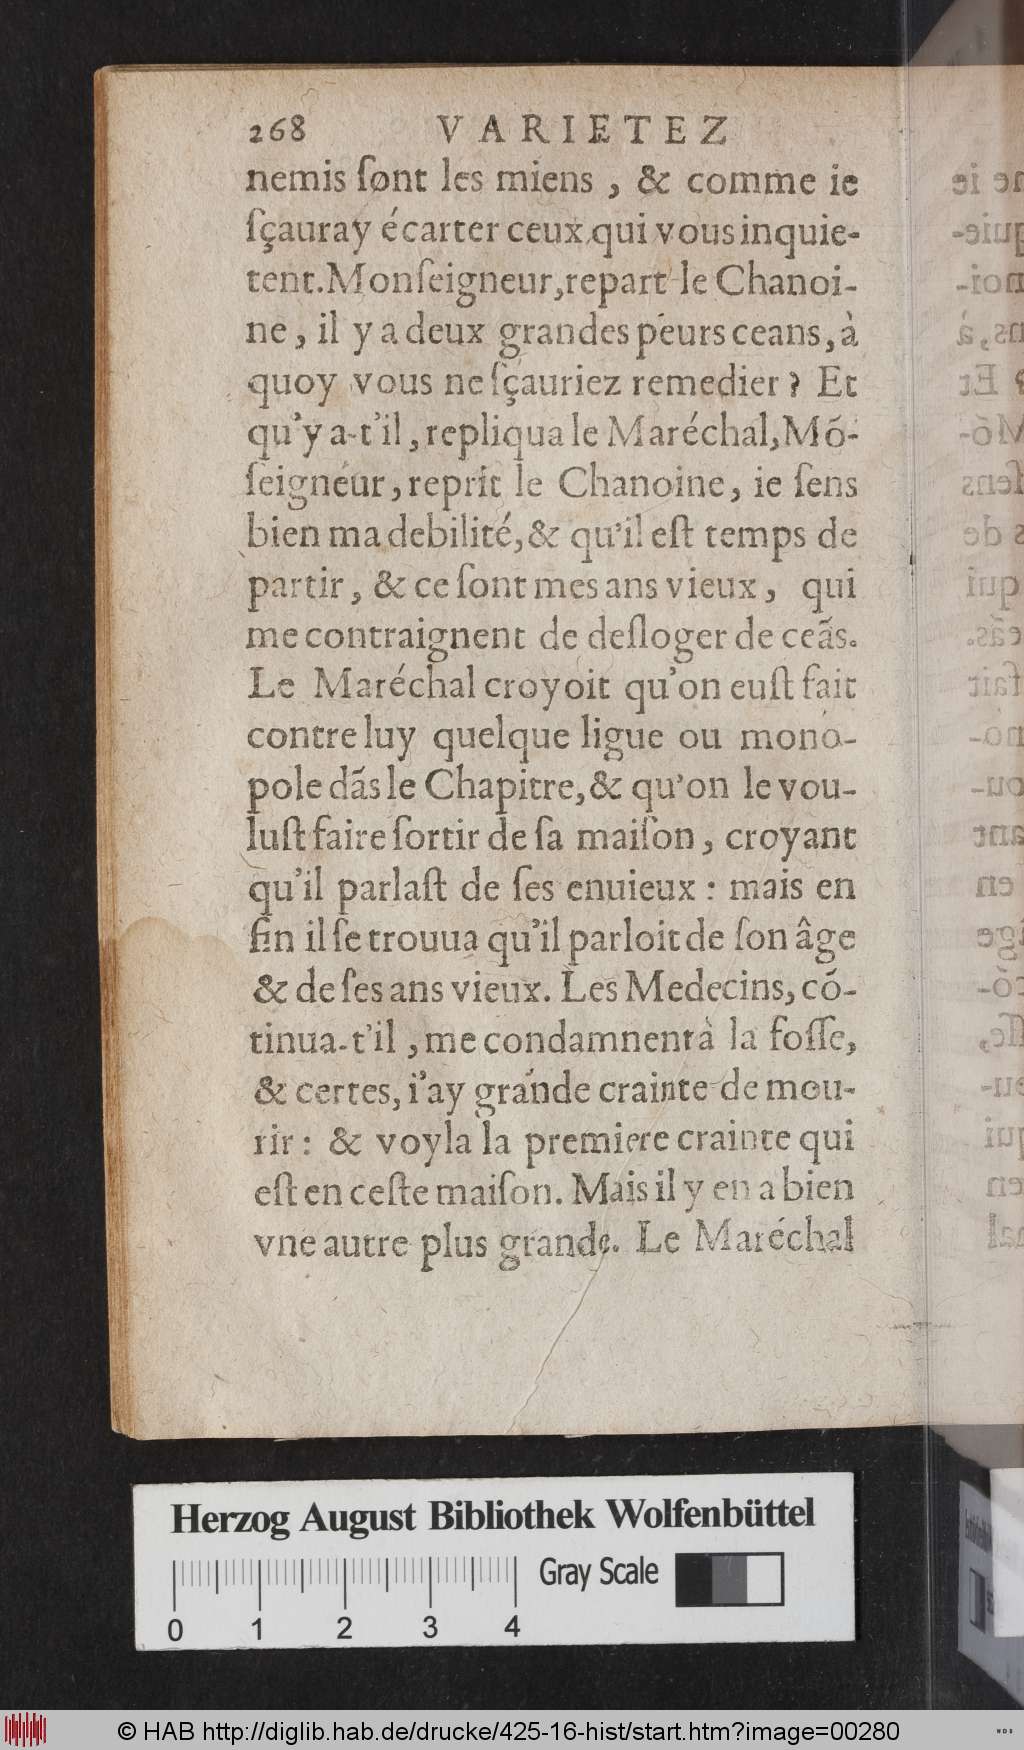 268 VARIETEZ
nemis ſont les miens, & comme ie
ſçauray écarter ceux qui vous inquie-
tent. Monſeigneur, repart le Chanoi-
ne, il y a deux grandes peurs ceans, à
quoy vous ne ſçauriez remedier? Et
qu'y a-t'il, repliqua le Maréchal, Mõ-
ſeigneur, reprit le Chanoine, ie ſens
bien ma debilité, & qu'il eſt temps de
partir, & ce ſont mes ans vieux, qui
me contraignent de deſloger de ceãs.
Le Maréchal croyoit qu'on euſt fait
contre luy quelque ligue ou mono-
pole dãs le Chapitre, & qu'on le vou-
luſt faire ſortir de ſa maiſon, croyant
qu'il parlaſt de ſes enuieux : mais en
fin il ſe trouua qu'il parloit de ſon âge
& de ſes ans vieux. Les Medecins, cõ-
tinua-t'il, me condamnent à la foſſe,
& certes, i'ay grande crainte de mou-
rir : & voyla la premiere crainte qui
eſt en ceſte maiſon. Mais il y en a bien
vne autre plus grande. Le Maréchal
Herzog August Bibliothek Wolfenbüttel
Gray Scale
0 1 2 3 4
© HAB http://diglib.hab.de/drucke/425-16-hist/start.htm?image=00280